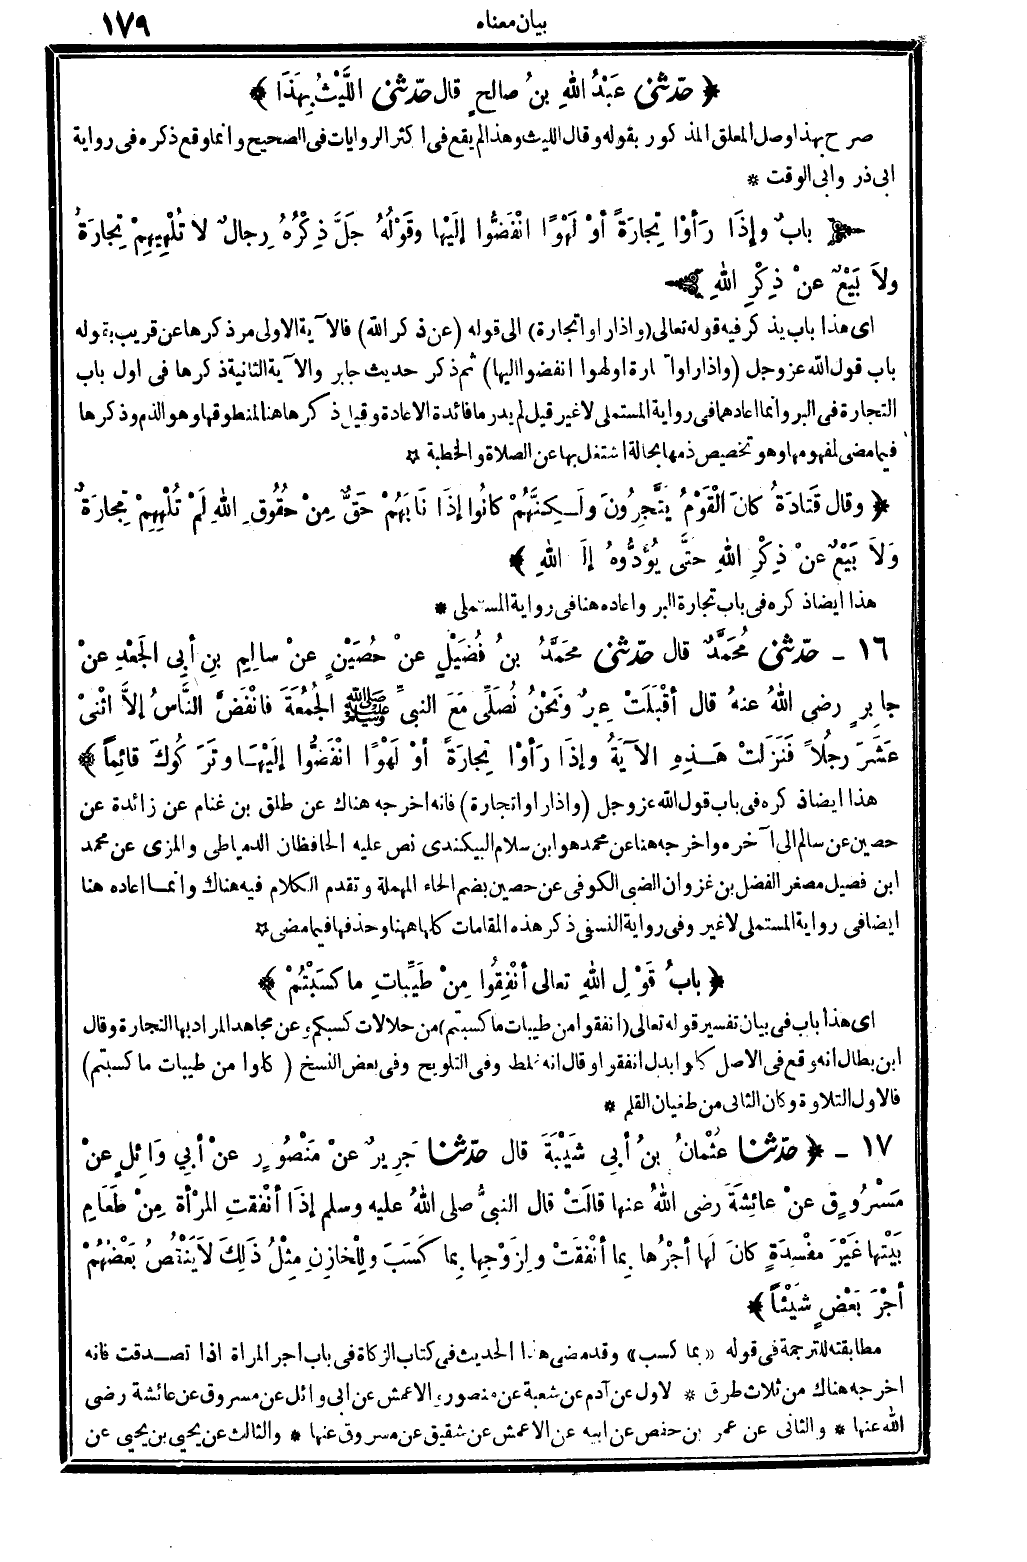 بيان معناه ١٧٩
﴿ حدّثني عَبْدُ اللهِ بنُ صالحٍ قال حدّثني اللَّيْثُ بِهَذَا ﴾
صرح بهذا وصل المعلق المذكور بقوله وقال الليث وهذا لم يقع فى اكثر الروايات فى الصحيح وانما وقع ذكره فى رواية
ابى ذر وابى الوقت *
﴿ بابٌ وإذَا رَأوْا تِجارَةً أوْ لَهْوًا انْفَضُّوا إلَيْها وقَوْلُهُ جَلَّ ذِكْرُهُ رِجالٌ لا تُلْهِيهِمْ تِجارَةٌ
ولاَ بَيْعٌ عنْ ذِكْرِ اللهِ ﴾
اى هذا باب يذكر فيه قوله تعالى (واذا راوا تجارة) الى قوله (عن ذكر الله) فالآية الاولى مر ذكرها عن قريب بقوله
باب قول الله عز وجل (واذا راوا تجارة او لهوا انفضوا اليها) ثم ذكر حديث جابر والآية الثانية ذكرها فى اول باب
التجارة فى البر وانما اعادهما فى رواية المستملى لاغير قيل لم يدر ما فائدة الاعادة وقيل ذكرها هنا لمنطوقها وهو الذم وذكرها
فيما مضى لمفهومها وهو تخصيص ذمها بحالة اشتغل بها عن الصلاة والخطبة *
﴿ وقال قَتَادَةُ كانَ الْقَوْمُ يَتَّجِرُونَ ولَـكِنَّهُمْ كانُوا إذَا نَابَهُمْ حَقٌّ مِنْ حُقُوقِ اللهِ لَمْ تُلْهِهِمْ تِجارَةٌ
وَلاَ بَيْعٌ عنْ ذِكْرِ اللهِ حتَّى يُؤَدُّوهُ إلَى اللهِ ﴾
هذا ايضا ذكره فى باب تجارة البر واعاده هنا فى رواية المستملى *
١٦ ـ حدّثني مُحَمَّدٌ قال حدّثني محَمَّدُ بنُ فُضَيْلٍ عنْ حُصَيْنٍ عنْ سالِمِ بنِ أبِي الجَعْدِ عنْ
جابِرٍ رضى اللهُ عنهُ قال أقْبَلَتْ عِيرٌ ونَحْنُ نُصَلِّى مَعَ النبىِّ ﷺ الجُمُعَةَ فانْفَضَّ النَّاسُ إلاَّ اثْنَىْ
عَشَرَ رجُلاً فَنَزَلَتْ هَـذِهِ الآيَةُ وإذَا رَأوْا تِجارَةً أوْ لَهْوًا انْفَضُّوا إلَيْهَـا وتَرَكُوكَ قائِماً ﴾
هذا ايضا ذكره فى باب قول الله عز وجل (واذا راوا تجارة) فانه اخرجه هناك عن طلق بن غنام عن زائدة عن
حصين عن سالم الى آخره واخرجه هنا عن محمد هو ابن سلام البيكندى نص عليه الحافظان الدمياطى والمزى عن محمد
ابن فصيل مصغر الفضل بن غزوان الضبى الكوفى عن حصين بضم الحاء المهملة وتقدم الكلام فيه هناك وانما اعاده هنا
ايضا فى رواية المستملى لاغير وفى رواية النسفى ذكر هذه المقامات كلها ههنا وحذفها فيما مضى *
﴿ بابُ قَوْلِ اللهِ تعالى أنْفِقُوا مِنْ طَيِّباتِ ما كَسَبْتُمْ ﴾
اى هذا باب فى بيان تفسير قوله تعالى (انفقوا من طيبات ما كسبتم) من حلالات كسبكم وعن مجاهد المراد بها التجارة وقال
ابن بطال انه وقع فى الاصل كلوا بدل انفقوا وقال انه غلط وفى التلويح وفى بعض النسخ (كلوا من طيبات ما كسبتم)
فالاول التلاوة وكان الثانى من طغيان القلم *
١٧ ـ ﴿ حدّثنا عثْمانُ بنُ أبى شَيْبَةَ قال حدّثنا جَرِيرٌ عنْ مَنْصُورٍ عنْ أبي وَائِلٍ عنْ
مَسْرُوقٍ عنْ عائِشَةَ رضى اللهُ عنها قالَتْ قال النبيُّ صلى اللهُ عليه وسلم إذَا أنْفَقتِ المرْأة مِنْ طَعَامِ
بَيْتِها غَيْرَ مفْسِدَةٍ كانَ لَها أجْرُها بِما أنْفَقَتْ ولِزَوْجِها بِما كَسَبَ ولِلْخازِنِ مِثْلُ ذَلِكَ لاَيَنْقُصُ بَعْضُهُمْ
أجْرَ بَعْضٍ شَيْئاً ﴾
مطابقته للترجمة فى قوله «بما كسب» وقد مضى هذا الحديث فى كتاب الزكاة فى باب اجر المراة اذا تصـدقت فانه
اخرجه هناك من ثلاث طرق * الاول عن آدم عن شعبة عن منصور والاعمش عن ابى وائل عن مسروق عن عائشة رضى
الله عنها * والثانى عن عمر بن حفص عن ابيه عن الاعمش عن شقيق عن مسروق عنها * والثالث عن يحيى بن يحيى عن